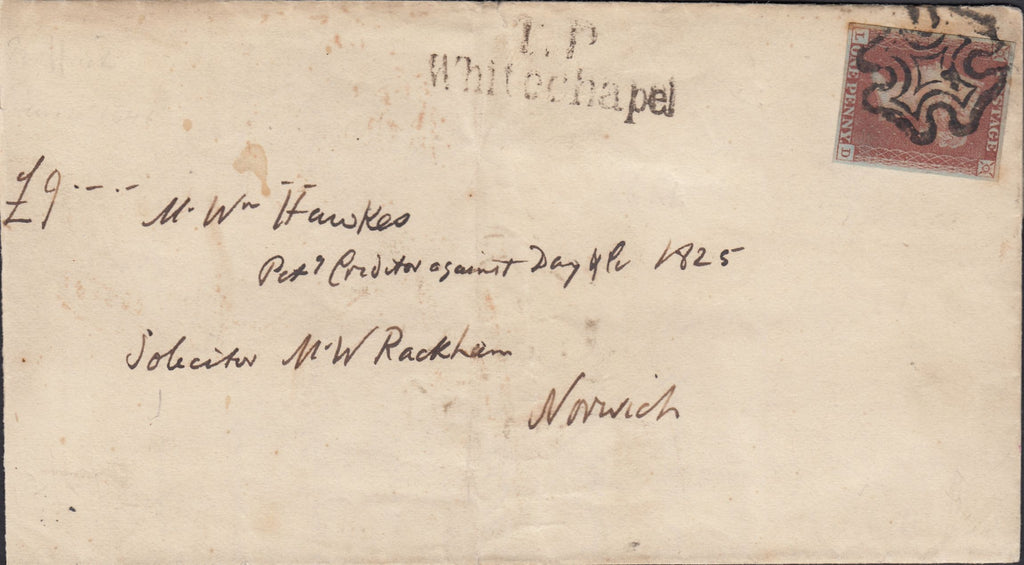 T.P
Whitechapel
POSTAGE
ONE PENNY
L D
£9 - - -
Mr Wm Hawkes
Petg Creditor against Day & Co 1825
Solicitor Mr W Rackham
Norwich